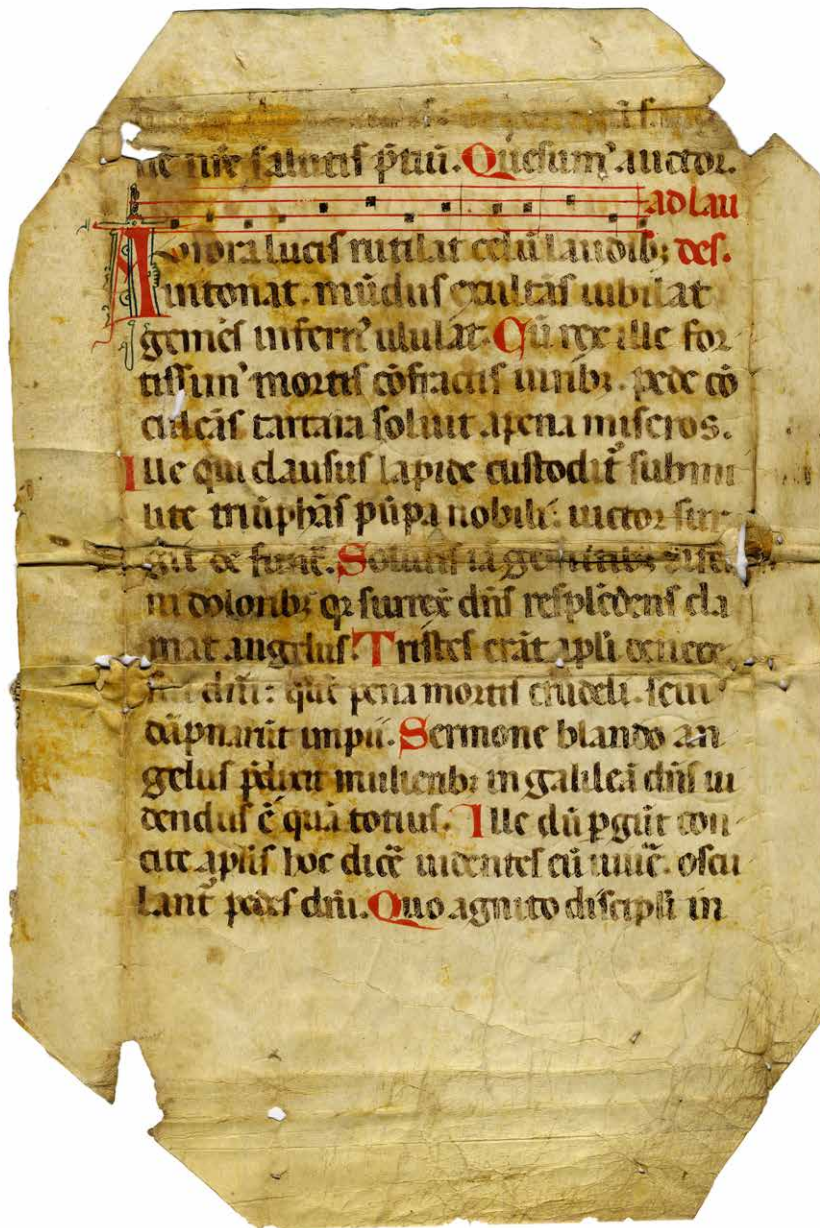 ne nr̄e salutis p̄tiū. Quesumꝰ auctor.
ad lau
Avrora lucis rutilat celū laudibꝫ des.
intonat. mūdus exultās iubilat
gemēs infernꝰ ululat. Cū rex ille for
tissimꝰ mortis cōfractis uiribꝫ. pede cō
culcās tartara soluit a pena miseros.
Ille qui clausus lapide custodit᷑ sub mi
lite triūphās pōpa nobili: uictor sur
git de funē. Solutis ia ge
ni doloribꝫ qꝛ surrex̄ dn̄s resplēdens cla
mat angelus. Tristes erāt apl̄i de nece
sui dn̄i: quē pena mortis crudeli. seui
dāpnarūt impii. Sermone blando an
gelus p̄dixit mulieribꝫ in galilea dn̄s ui
dendus ē quā totius. Ille dū pgūt con
cite apl̄is hoc dicē uidentes eū uiuē. oscu
lant᷑ pedes dn̄i. Quo agnito discipl̄i in